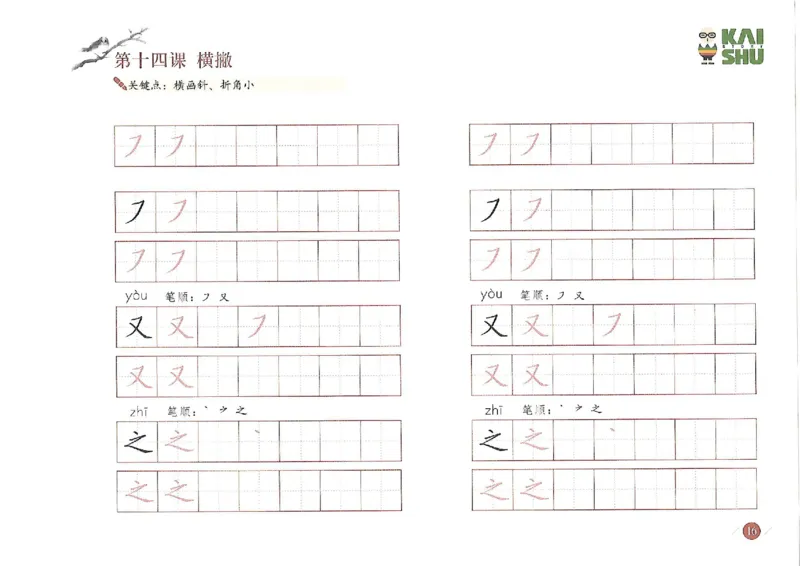 第十四课 横撇
关键点：横画斜、折角小
KAI
STORY
SHU
㇇ ㇇
㇇ ㇇
㇇ ㇇
yòu 笔顺：㇇ 又
又 又 ㇇
又 又
zhī 笔顺：丶 ㇇ 之
之 之 丶
之 之
㇇ ㇇
㇇ ㇇
㇇ ㇇
yòu 笔顺：㇇ 又
又 又 ㇇
又 又
zhī 笔顺：丶 ㇇ 之
之 之 丶
之 之
16